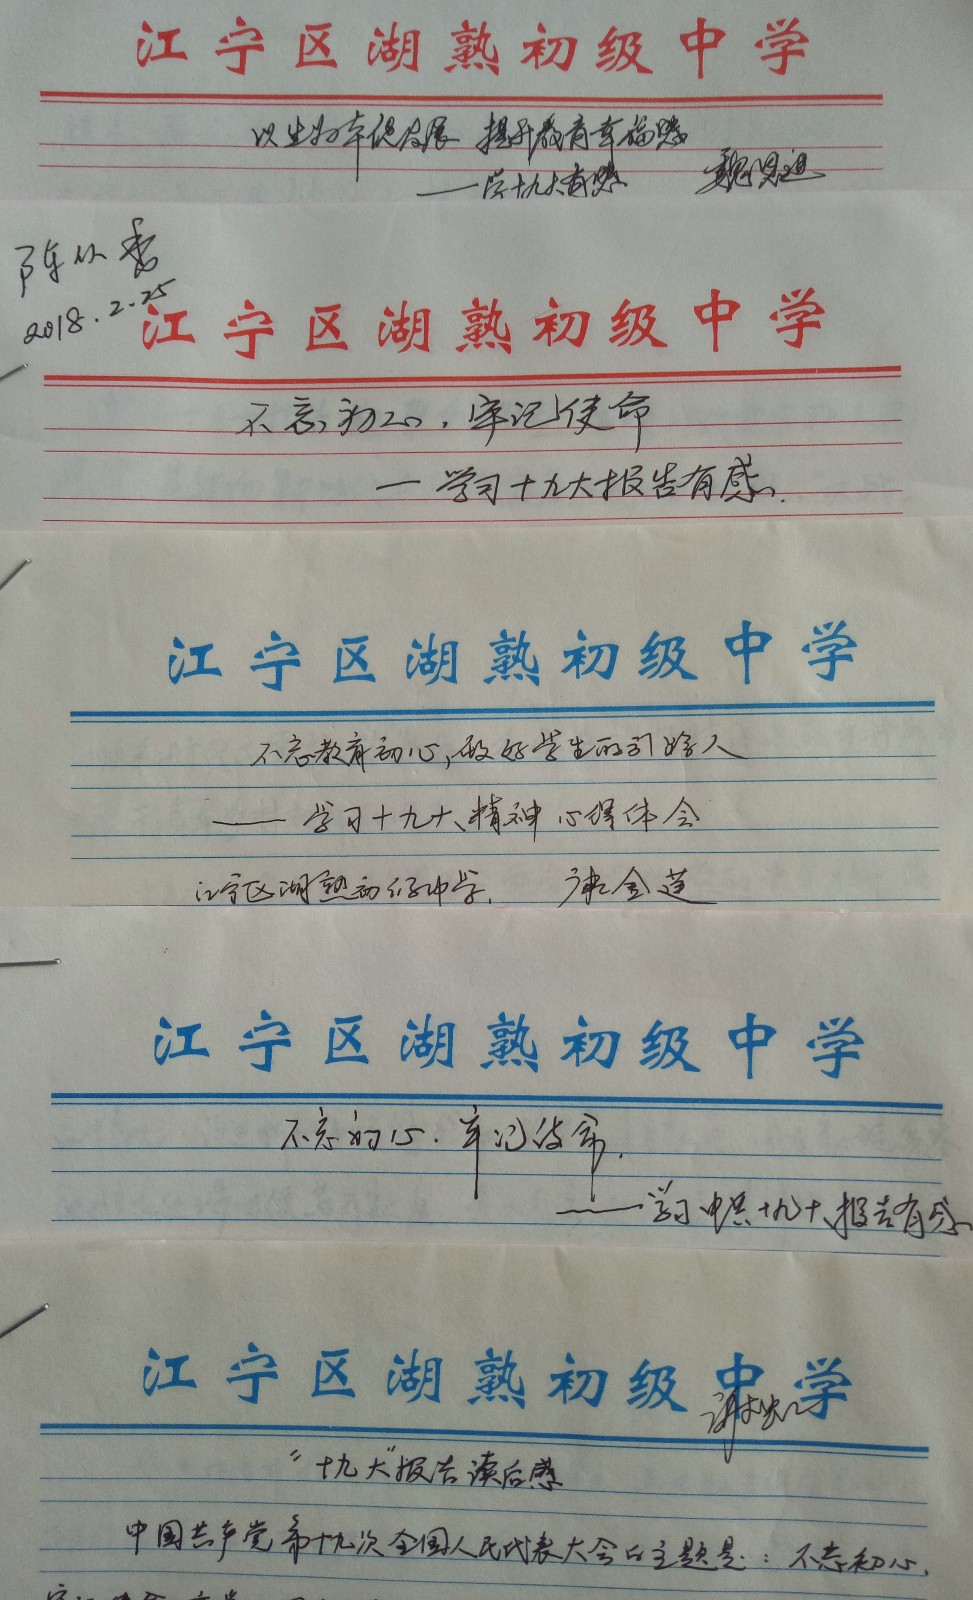 江宁区湖熟初级中学
以生为本促发展 提升教育幸福感
——学十九大有感
陈从香
2018.2.25
江宁区湖熟初级中学
不忘初心,牢记使命
—学习十九大报告有感.
江宁区湖熟初级中学
不忘教育初心,做好学生的引路人
——学习十九大精神心得体会
江宁区湖熟初级中学. 金莲
江宁区湖熟初级中学
不忘初心.牢记使命.
——学习中共十九大报告有感
江宁区湖熟初级中学
“十九大”报告读后感
中国共产党第十九次全国人民代表大会的主题是:不忘初心,